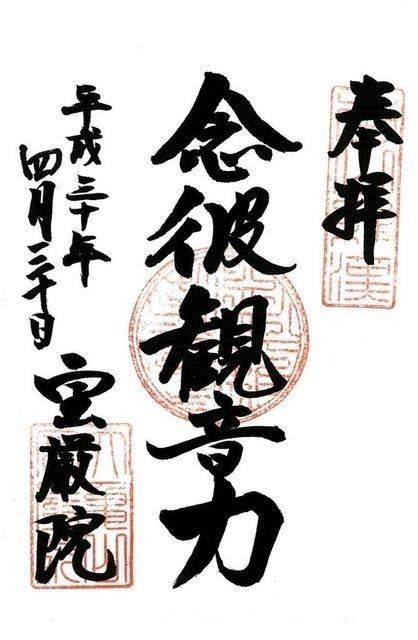 奉拝
念彼観音力
平成三十年
四月二十日
宝厳院